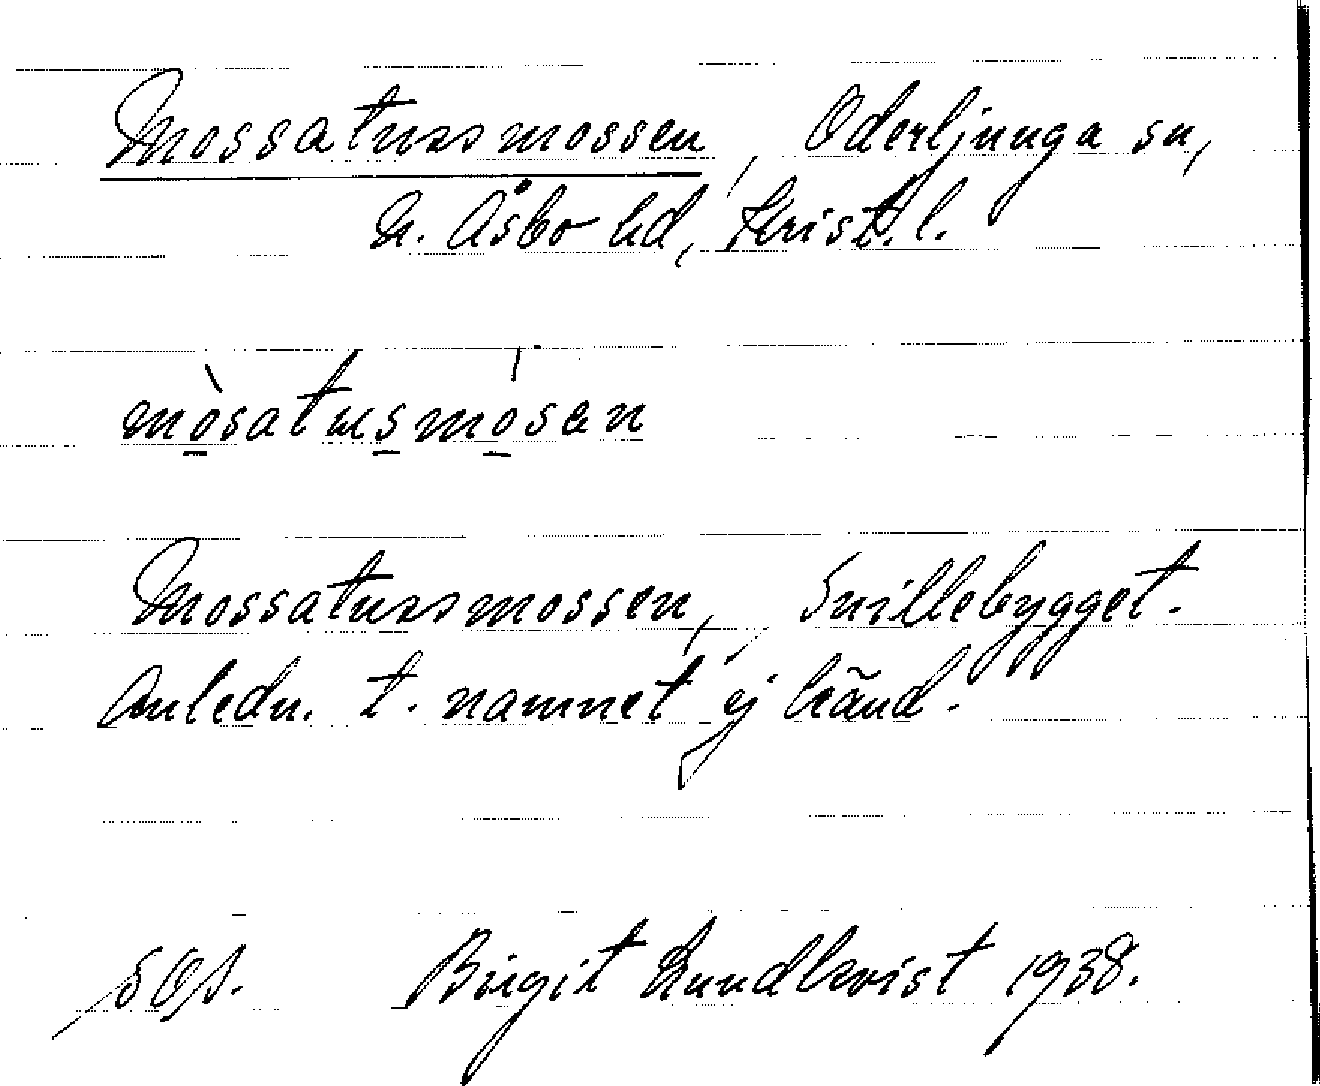 Mossatussmossen, Oderljunga sn,
N. Åsbo hd, Krist. l.
mòsatusmósen
Mossatussmossen, Snillebygget.
Anledn. t. namnet ej känd.
Birgit Lundkvist 1938.